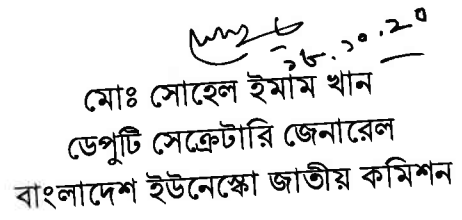 ১৮.১০.২০
মোঃ সোহেল ইমাম খান
ডেপুটি সেক্রেটারি জেনারেল
বাংলাদেশ ইউনেস্কো জাতীয় কমিশন